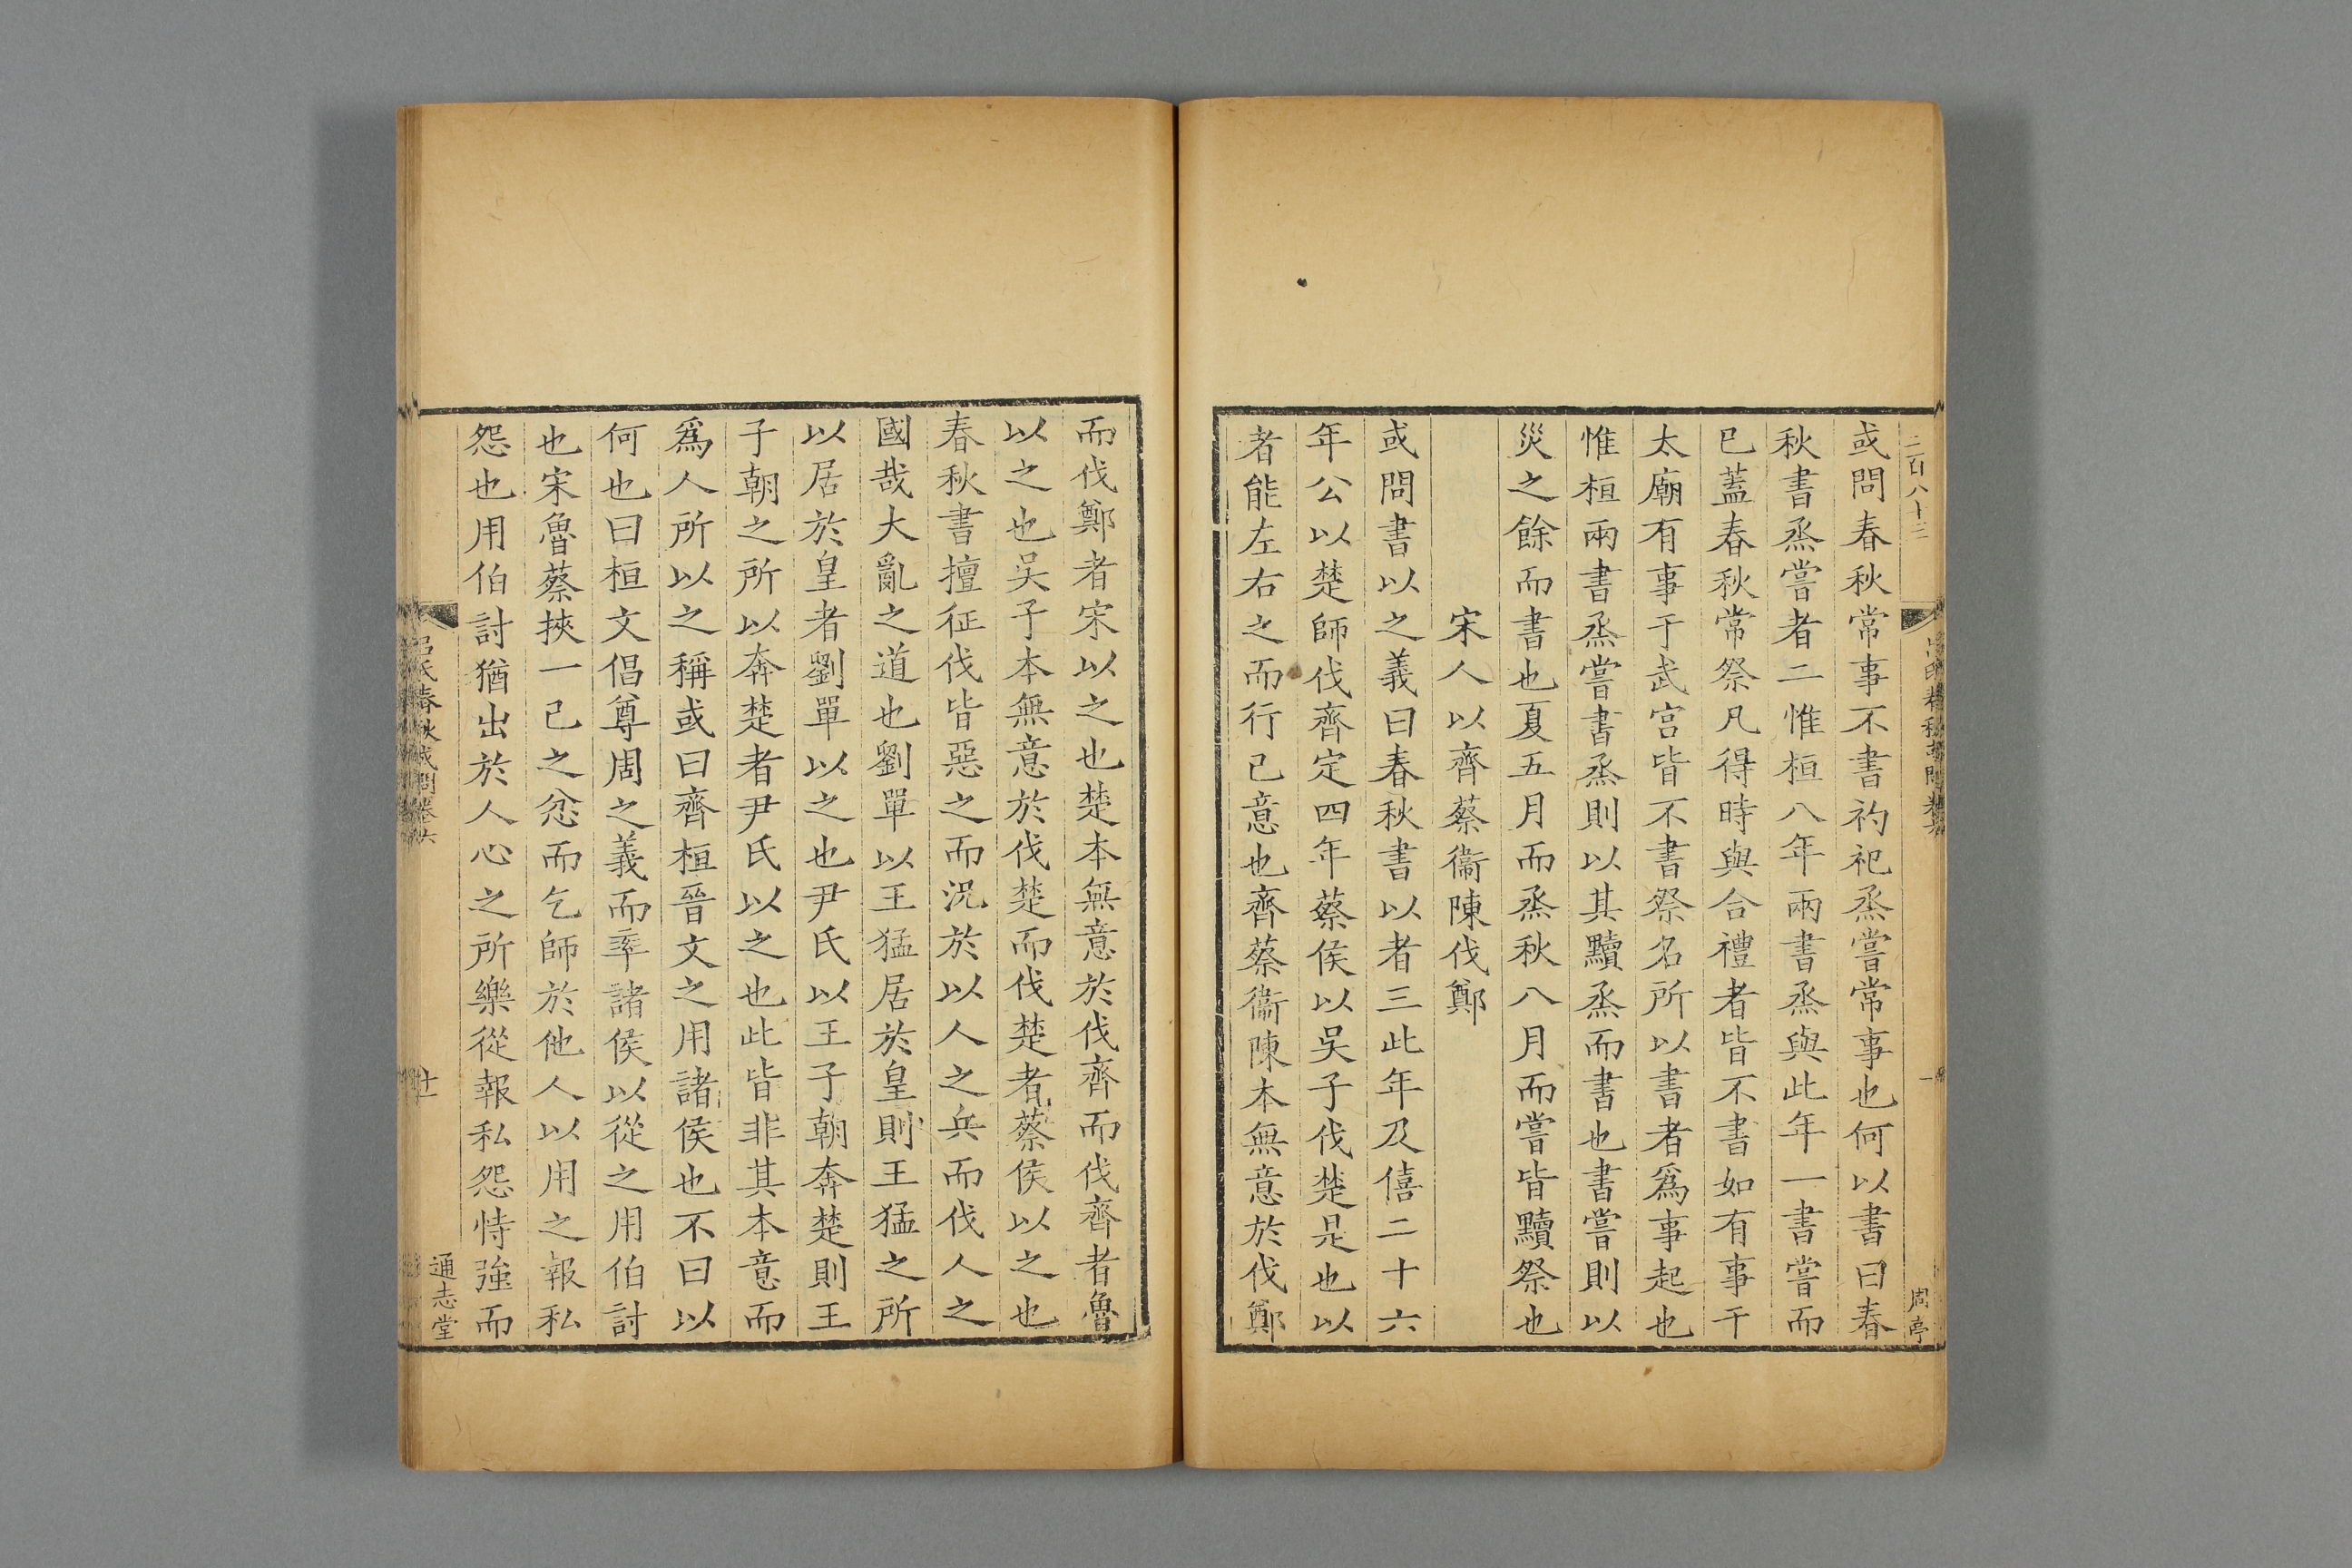 二百八十三
周亭
或問春秋常事不書礿祀烝嘗常事也何以書曰春
秋書烝嘗者二惟桓八年兩書烝與此年一書嘗而
已蓋春秋常祭凡得時與合禮者皆不書如有事于
太廟有事于武宮皆不書祭名所以書者爲事起也
惟桓兩書烝嘗書烝則以其黷烝而書也書嘗則以
災之餘而書也夏五月而烝秋八月而嘗皆黷祭也
宋人以齊蔡衞陳伐鄭
或問書以之義曰春秋書以者三此年及僖二十六
年公以楚師伐齊定四年蔡侯以吳子伐楚是也以
者能左右之而行己意也齊蔡衞陳本無意於伐鄭
而伐鄭者宋以之也楚本無意於伐齊而伐齊者魯
以之也吳子本無意於伐楚而伐楚者蔡侯以之也
春秋書擅征伐皆惡之而況於以人之兵而伐人之
國哉大亂之道也劉單以王猛居於皇則王猛之所
以居於皇者劉單以之也尹氏以王子朝奔楚則王
子朝之所以奔楚者尹氏以之也此皆非其本意而
爲人所以之稱或曰齊桓晉文之用諸侯也不曰以
何也曰桓文倡尊周之義而率諸侯以從之用伯討
也宋魯蔡挾一己之忿而乞師於他人以用之報私
怨也用伯討猶出於人心之所樂從報私怨恃強而
呂氏春秋或問卷六
十一
通志堂